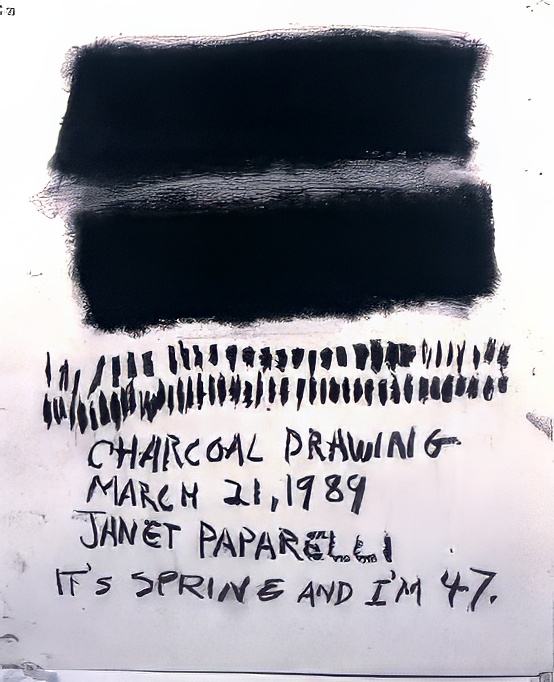 CHARCOAL DRAWING
MARCH 21, 1989
JANET PAPARELLI
IT'S SPRING AND I'M 47.